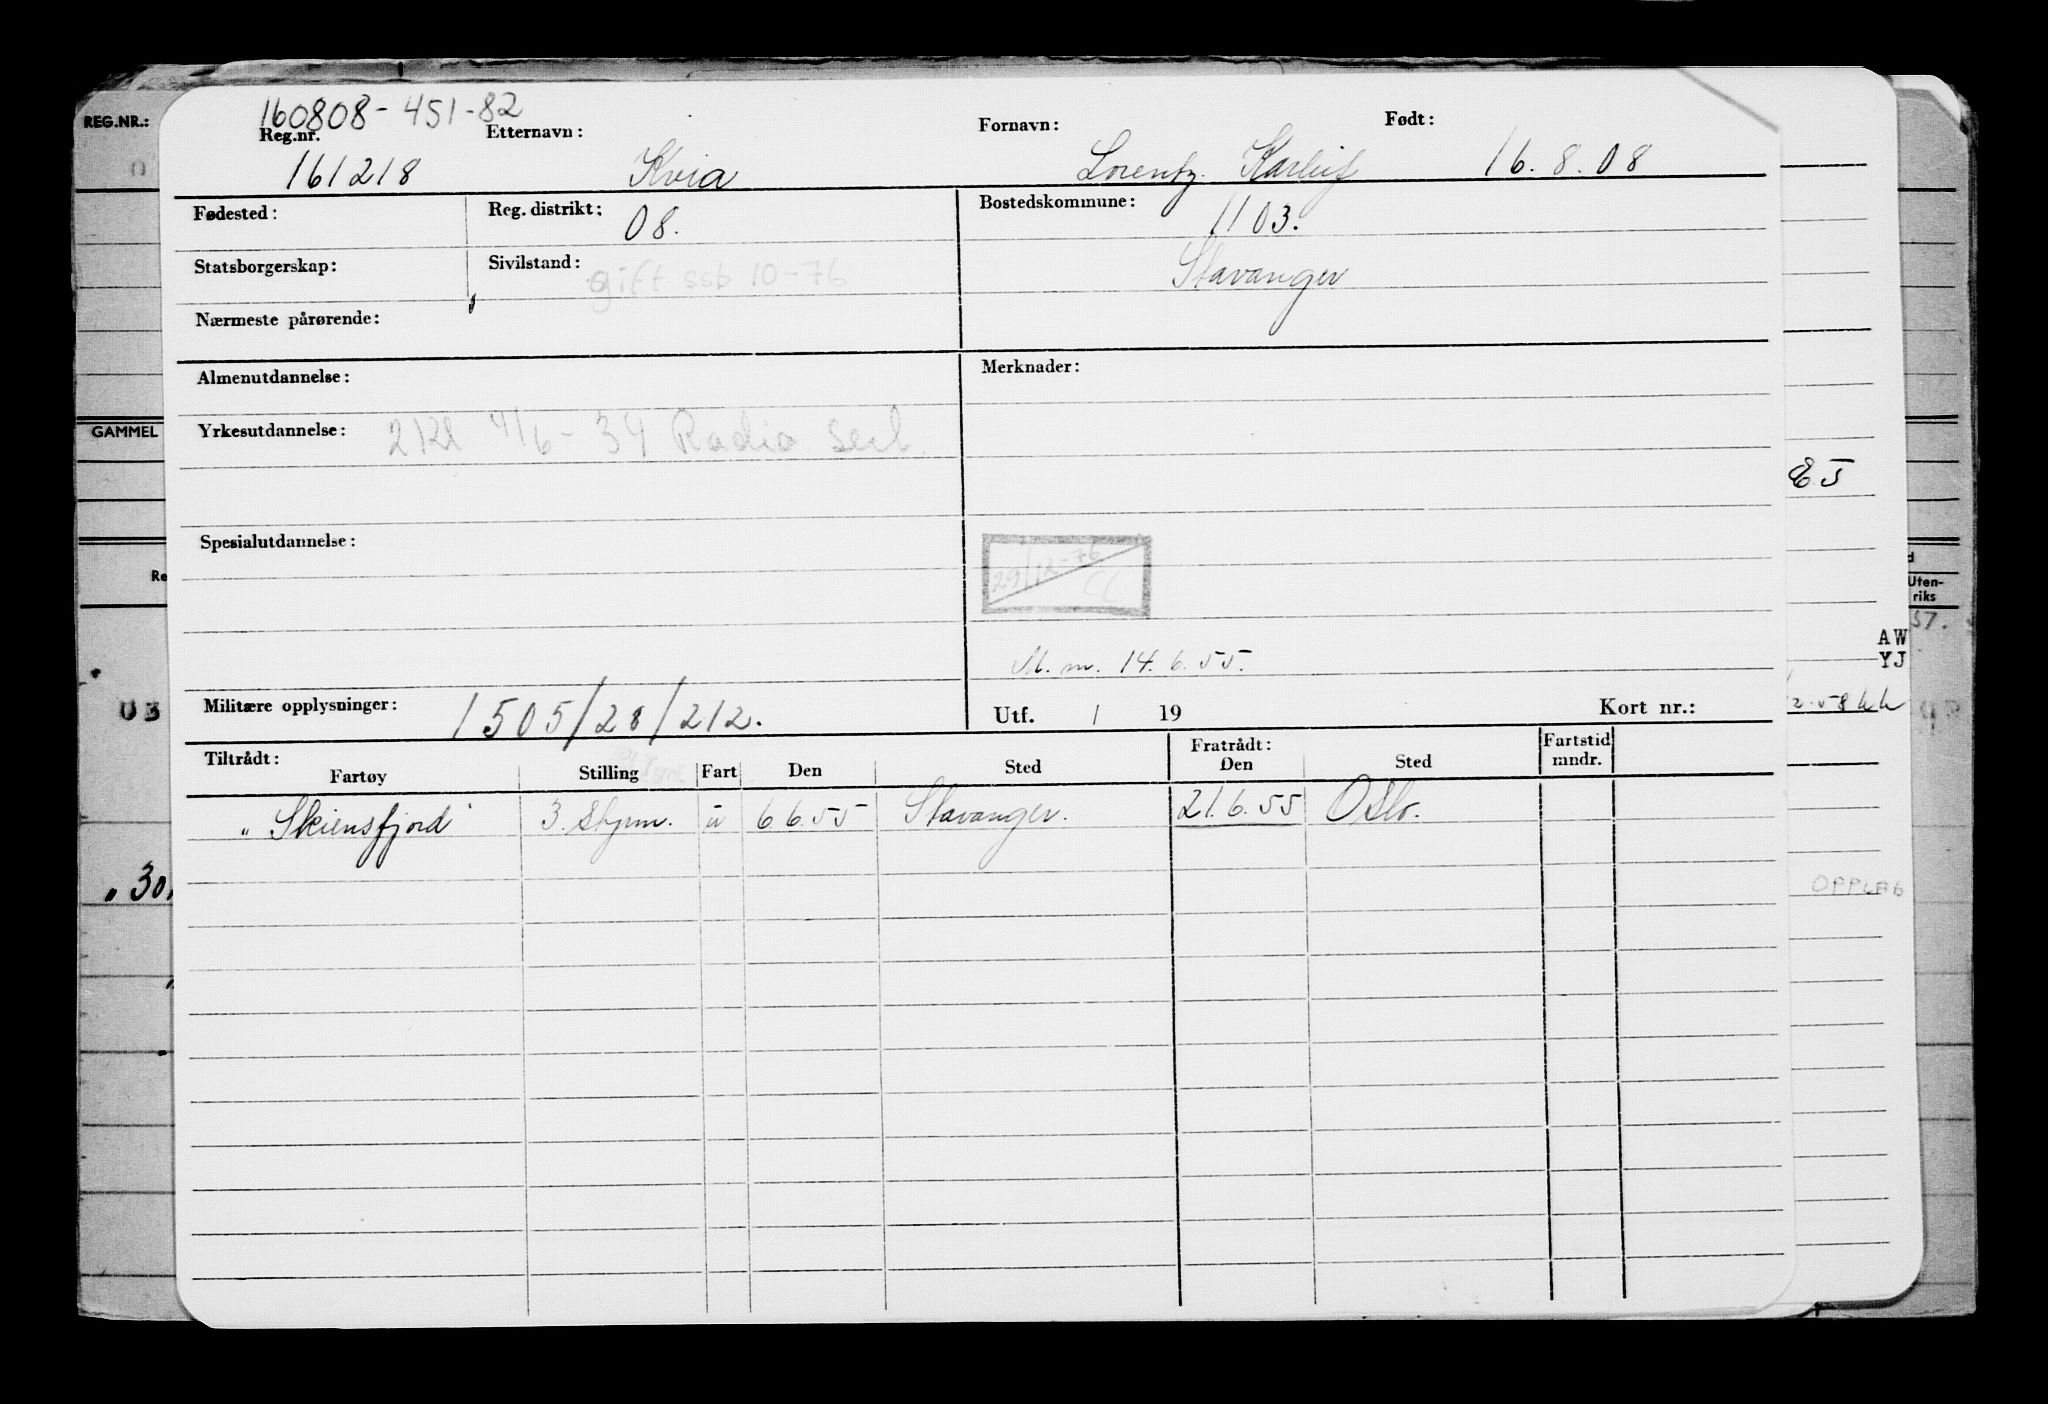 160808-451-82
REG.NR.:
Reg.nr. Etternavn: Fornavn: Født:
161218 Kvia Lorentz Karluf 16.8.08
Fødested: Reg. distrikt: 08. Bostedskommune: 1103.
Statsborgerskap: Sivilstand: gift ssb 10-76 Stavanger
Nærmeste pårørende:
Almenutdannelse: Merknader:
GAMMEL
Yrkesutdannelse: 4/6-34 Radio
85
Spesialutdannelse:
29/12-76 CL
Re
Uten-
riks
57.
AW
YJ
M.m. 14.6.55.
03
Militære opplysninger: 1505/28/212. Utf. / 19 Kort nr.:
2.58
Tiltrådt: Fratrådt: Fartstid
Fartøy Stilling Fart Den Sted Den Sted mndr.
"Skiensfjord" 3. Stjnn. u 6.6.55 Stavanger. 21.6.55 Oslo.
"30.
OPPLAG